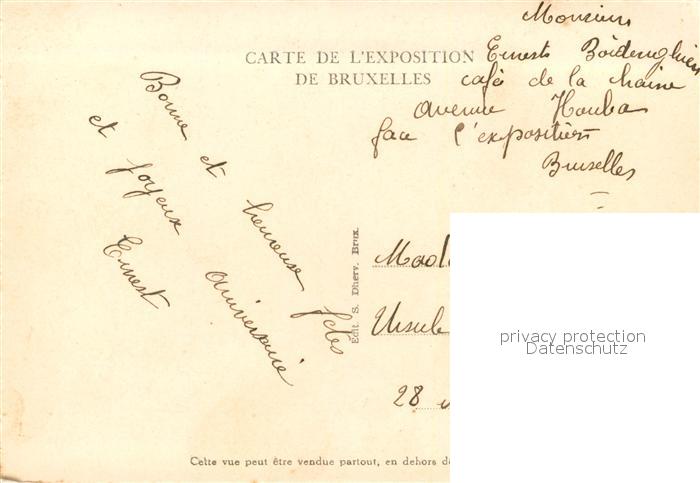 Monsieur
CARTE DE L'EXPOSITION
DE BRUXELLES
Ernest
café de la
avenue Houba
face l'exposition
Bruxelles
Bonne et heureuse fêtes
et joyeux aniversaire
Ernest
Edit. S. Dherv. Brux.
Ursule
28
privacy protection
Datenschutz
Cette vue peut être vendue partout, en dehors d